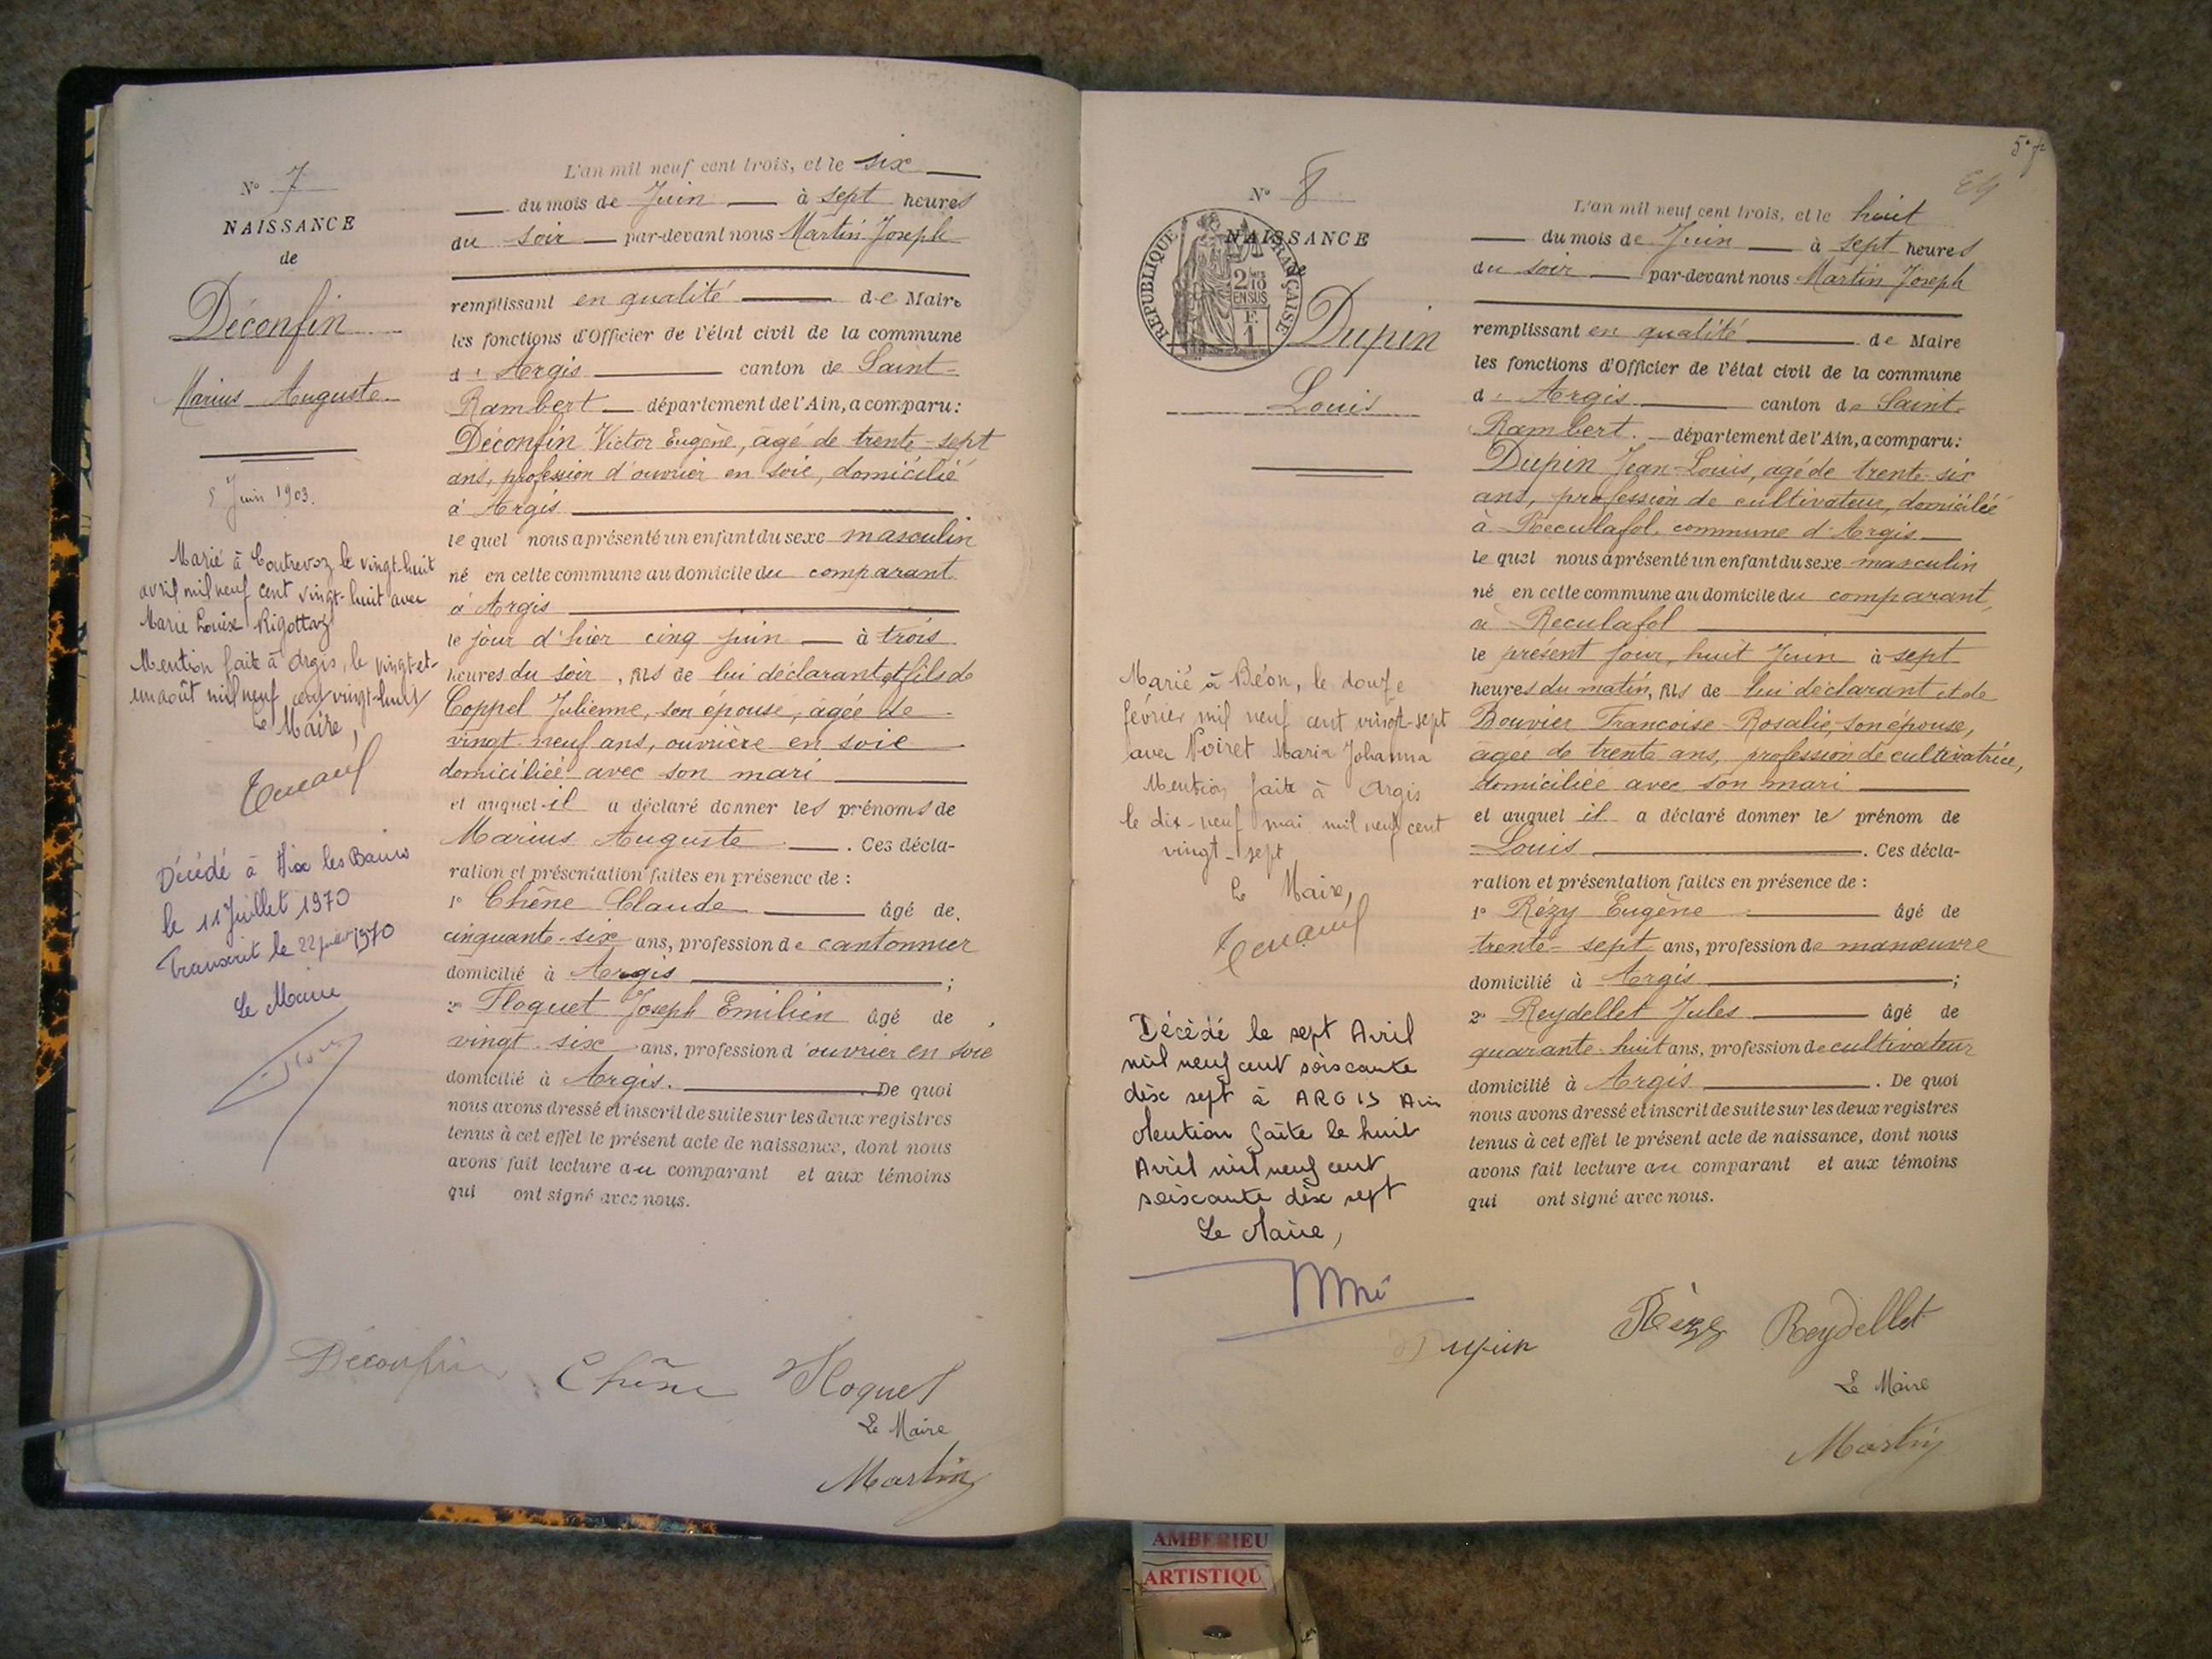 N° 7
NAISSANCE
de
Déconfin
Marius Auguste
5 Juin 1903.
Marié à Contrevoz le vingt-huit
avril mil neuf cent vingt-huit avec
Marie Louise Rigottaz
Mention faite à Argis, le vingt-et-
un août mil neuf cent vingt-huit
Le Maire,
Décédé à Aix les Bains
le 11 Juillet 1970
Transcrit le 22 juillet 1970
Le Maire
L'an mil neuf cent trois, et le six
du mois de Juin à sept heures
du soir par-devant nous Martin Joseph
remplissant en qualité de Maire
les fonctions d'Officier de l'état civil de la commune
d' Argis canton de Saint-
Rambert département de l'Ain, a comparu:
Déconfin Victor Eugène, âgé de trente-sept
ans, profession d'ouvrier en soie, domicilié
à Argis
le quel nous a présenté un enfant du sexe masculin
né en cette commune au domicile du comparant
à Argis
le jour d'hier cinq juin à trois
heures du soir, fils de lui déclarant et fils de
Coppel Julienne, son épouse, âgée de
vingt-neuf ans, ouvrière en soie
domiciliée avec son mari
et auquel il a déclaré donner les prénoms de
Marius Auguste. Ces décla-
ration et présentation faites en présence de:
1° Chêne Claude âgé de
cinquante-six ans, profession de cantonnier
domicilié à Argis;
2° Floquet Joseph Emilien âgé de
vingt-six ans, profession d'ouvrier en soie
domicilié à Argis. De quoi
nous avons dressé et inscrit de suite sur les deux registres
tenus à cet effet le présent acte de naissance, dont nous
avons fait lecture au comparant et aux témoins
qui ont signé avec nous.
Déconfin Chêne Floquet
Le Maire
Martin
5e f
N° 8
NAISSANCE
de
REPUBLIQUE FRANÇAISE
2/10
EN SUS
F.
1
Dupin
Louis
Marié à Béon, le douze
février mil neuf cent vingt-sept
avec Poiret Maria Johanna
Mention faite à Argis
le dix-neuf mai mil neuf cent
vingt-sept
Le Maire,
Décédé le sept Avril
mil neuf cent soiscante
dix sept à ARGIS Ain
Mention faite le huit
Avril mil neuf cent
soiscante dix sept
Le Maire,
L'an mil neuf cent trois, et le huit
du mois de Juin à sept heures
du soir par-devant nous Martin Joseph
remplissant en qualité de Maire
les fonctions d'Officier de l'état civil de la commune
d' Argis canton de Saint-
Rambert. département de l'Ain, a comparu:
Dupin Jean-Louis, âgé de trente-six
ans, profession de cultivateur, domicilié
à Reculafol, commune d'Argis
le quel nous a présenté un enfant du sexe masculin
né en cette commune au domicile du comparant,
à Reculafol
le présent jour, huit Juin à sept
heures du matin, fils de lui déclarant et de
Bouvier Francoise-Rosalie, son épouse,
agée de trente ans, profession de cultivatrice,
domiciliée avec son mari
et auquel il a déclaré donner le prénom de
Louis. Ces décla-
ration et présentation faites en présence de:
1° Rézy Eugène âgé de
trente-sept ans, profession de manœuvre
domicilié à Argis;
2° Reydellet Jules âgé de
quarante-huit ans, profession de cultivateur
domicilié à Argis. De quoi
nous avons dressé et inscrit de suite sur les deux registres
tenus à cet effet le présent acte de naissance, dont nous
avons fait lecture au comparant et aux témoins
qui ont signé avec nous.
Dupin Rézy Reydellet
Le Maire
Martin
AMBERIEU
ARTISTIQU